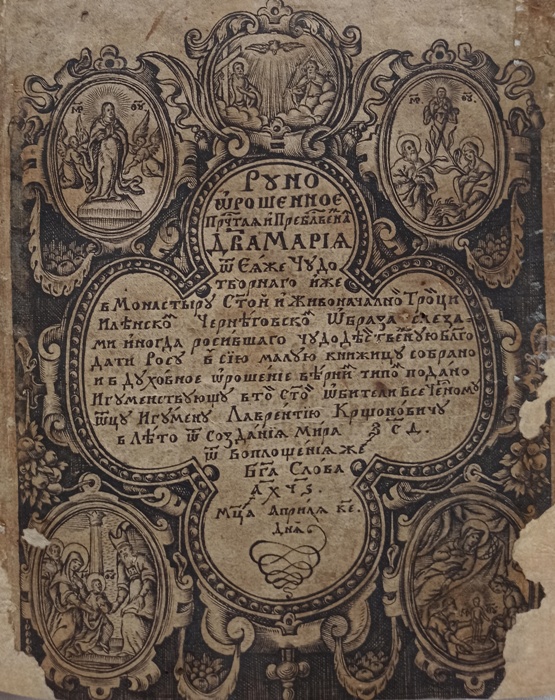 МР ѲУ
МР ѲУ
РУНО
Ѡ҆РОШЕННОЕ
ПРЧ҃ТАѦ И ПРЕБЛГ҃ВЕННАѦ
ДВ҃А МАРІѦ
Ѿ ЕѦЖЕ ЧУДО
ТВОРНАГО ИЖЕ
в Монастыру Ст҃ой и Живоначално Троци
Илѣнско Чернѣговско Ѡбраза слеза
ми иногда росившаго чудодѣствен̾ную блг҃о
дати Росу в сїю малую книжицу собрано
и в духовное ѡрошенїе вѣрни типо подано
Игуменствующу в то сто ѡбители Все Че҃ному
ѿцу Игумену Лаврентїю Крщоновичу
в Лѣто ѿ Созданїѧ Мира ҂З С Д .
ѿ воплощенїѧ же
Бг҃а Слова
҂А Х Ч Ѕ .
Мц҃а Априлѧ ке .
Днѧ